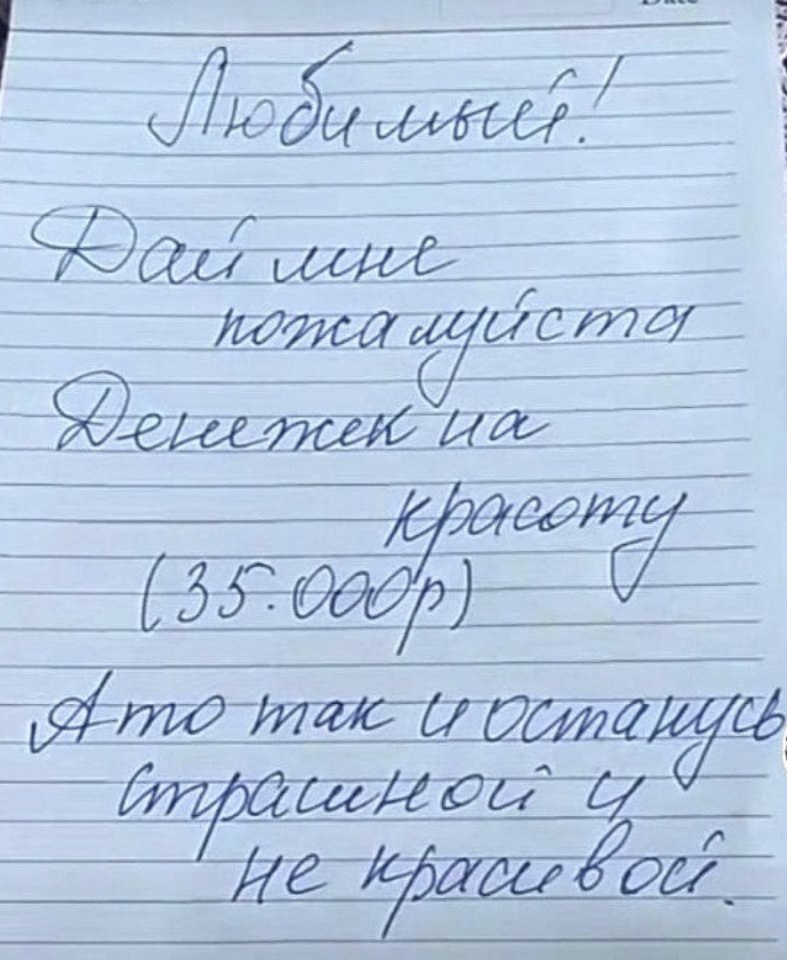 Date
Любимый!
Дай мне
пожалуйста
Денежек на
красоту
(35.000р)
А то так и останусь
страшной и
не красивой.